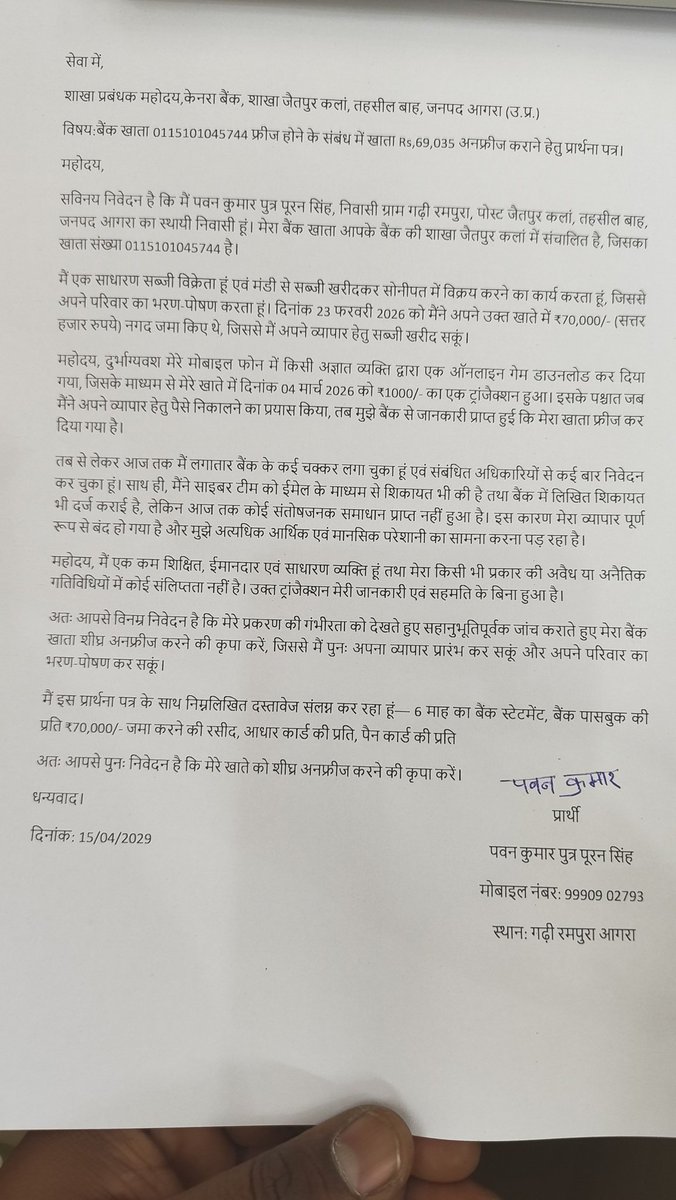 सेवा में,
शाखा प्रबंधक महोदय,केनरा बैंक, शाखा जैतपुर कलां, तहसील बाह, जनपद आगरा (उ.प्र.)
विषय:बैंक खाता 0115101045744 फ्रीज होने के संबंध में खाता Rs,69,035 अनफ्रीज कराने हेतु प्रार्थना पत्र।
महोदय,
सविनय निवेदन है कि मैं पवन कुमार पुत्र पूरन सिंह, निवासी ग्राम गढ़ी रमपुरा, पोस्ट जैतपुर कलां, तहसील बाह,
जनपद आगरा का स्थायी निवासी हूं। मेरा बैंक खाता आपके बैंक की शाखा जैतपुर कलां में संचालित है, जिसका
खाता संख्या 0115101045744 है।
मैं एक साधारण सब्जी विक्रेता हूं एवं मंडी से सब्जी खरीदकर सोनीपत में विक्रय करने का कार्य करता हूं, जिससे
अपने परिवार का भरण-पोषण करता हूं। दिनांक 23 फरवरी 2026 को मैंने अपने उक्त खाते में ₹70,000/- (सत्तर
हजार रुपये) नगद जमा किए थे, जिससे मैं अपने व्यापार हेतु सब्जी खरीद सकूं।
महोदय, दुर्भाग्यवश मेरे मोबाइल फोन में किसी अज्ञात व्यक्ति द्वारा एक ऑनलाइन गेम डाउनलोड कर दिया
गया, जिसके माध्यम से मेरे खाते में दिनांक 04 मार्च 2026 को ₹1000/- का एक ट्रांजैक्शन हुआ। इसके पश्चात जब
मैंने अपने व्यापार हेतु पैसे निकालने का प्रयास किया, तब मुझे बैंक से जानकारी प्राप्त हुई कि मेरा खाता फ्रीज कर
दिया गया है।
तब से लेकर आज तक मैं लगातार बैंक के कई चक्कर लगा चुका हूं एवं संबंधित अधिकारियों से कई बार निवेदन
कर चुका हूं। साथ ही, मैंने साइबर टीम को ईमेल के माध्यम से शिकायत भी की है तथा बैंक में लिखित शिकायत
भी दर्ज कराई है, लेकिन आज तक कोई संतोषजनक समाधान प्राप्त नहीं हुआ है। इस कारण मेरा व्यापार पूर्ण
रूप से बंद हो गया है और मुझे अत्यधिक आर्थिक एवं मानसिक परेशानी का सामना करना पड़ रहा है।
महोदय, मैं एक कम शिक्षित, ईमानदार एवं साधारण व्यक्ति हूं तथा मेरा किसी भी प्रकार की अवैध या अनैतिक
गतिविधियों में कोई संलिप्तता नहीं है। उक्त ट्रांजैक्शन मेरी जानकारी एवं सहमति के बिना हुआ है।
अतः आपसे विनम्र निवेदन है कि मेरे प्रकरण की गंभीरता को देखते हुए सहानुभूतिपूर्वक जांच कराते हुए मेरा बैंक
खाता शीघ्र अनफ्रीज करने की कृपा करें, जिससे मैं पुनः अपना व्यापार प्रारंभ कर सकूं और अपने परिवार का
भरण-पोषण कर सकूं।
मैं इस प्रार्थना पत्र के साथ निम्नलिखित दस्तावेज संलग्न कर रहा हूं— 6 माह का बैंक स्टेटमेंट, बैंक पासबुक की
प्रति ₹70,000/- जमा करने की रसीद, आधार कार्ड की प्रति, पैन कार्ड की प्रति
अतः आपसे पुनः निवेदन है कि मेरे खाते को शीघ्र अनफ्रीज करने की कृपा करें।
धन्यवाद।
दिनांक: 15/04/2029
पवन कुमार
प्रार्थी
पवन कुमार पुत्र पूरन सिंह
मोबाइल नंबर: 99909 02793
स्थान: गढ़ी रमपुरा आगरा